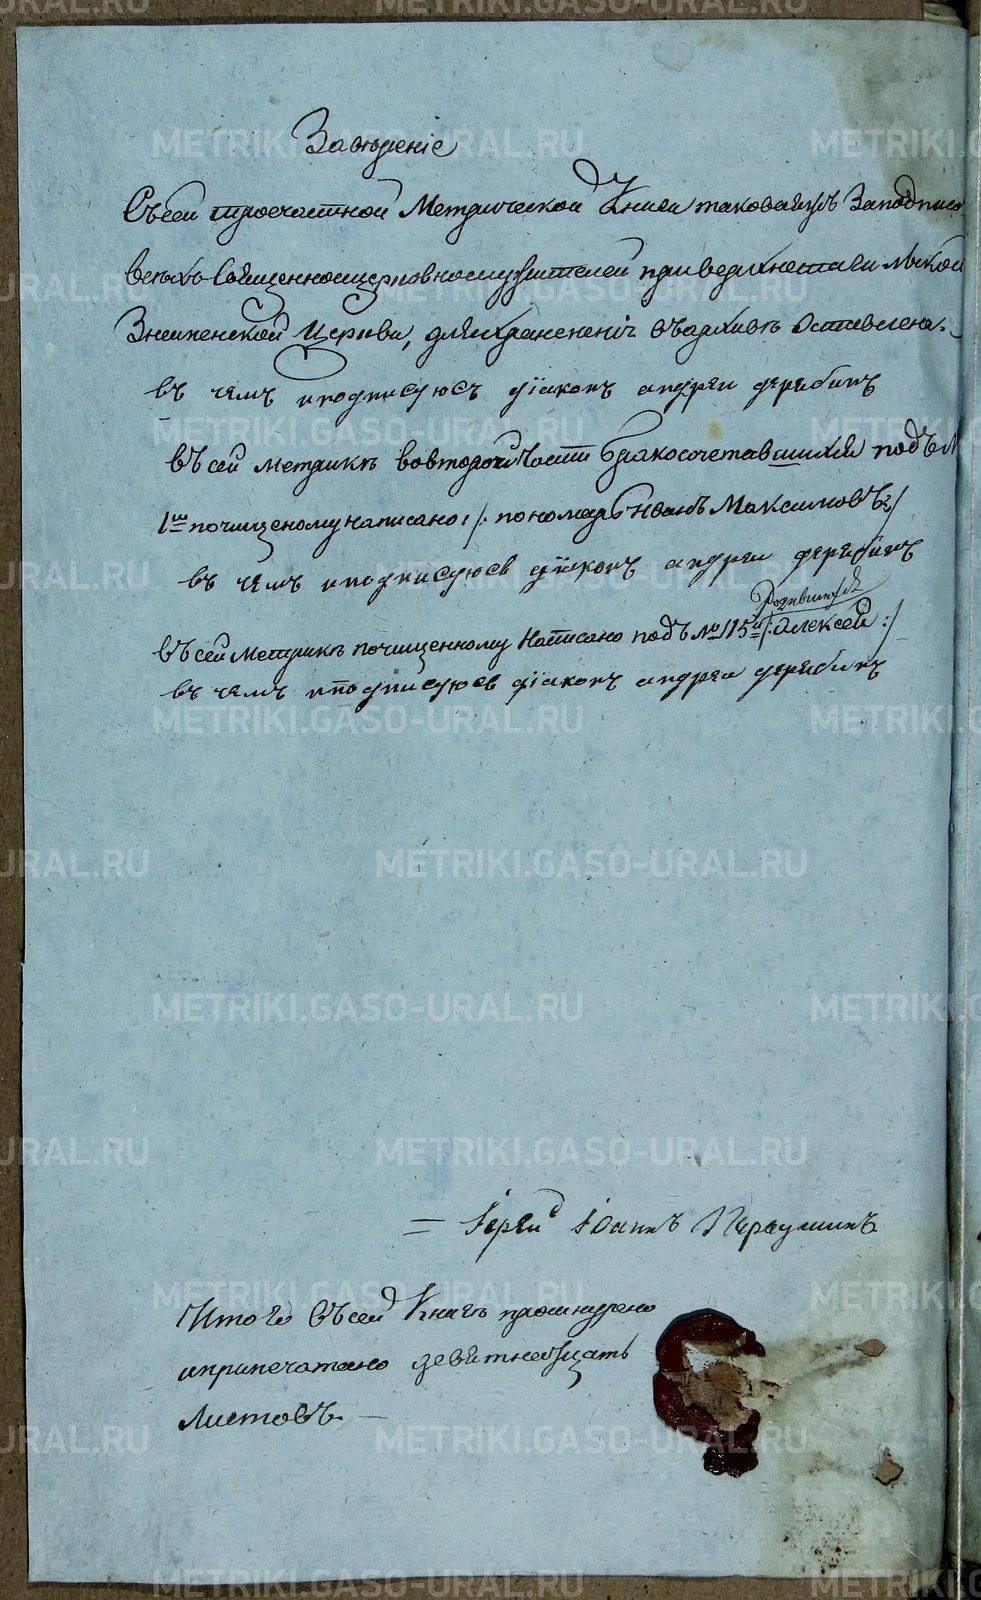 Заверенiе
Съсей троечастной Метрической Книги таковаяжъ Заподписа
Священноцерковнослужителей при
Знаменской Церкви, дляхраненiи въархивѣ Оставлена.
въ чемъ и подписуюсъ дiаконъ андреи дерябинъ
въсей метрикѣ вовторойчасти бракосочетавшихся подъ №
1ш почищеному написано: /: пономарь Иванъ Максимовъ :/
въ чемъ и подписуюсв дiаконъ андреи дерябинъ
Родившихся
въсей метрикѣ почищенному Написано подъ № 115й /: Алексей :/
въ чемъ и подписуюсв дiаконъ андреи дерябинъ
= Iерей Iоаннъ
Итого Въсей Книгѣ прошнурено
иприпечатано девятнадцать
листовъ. —
METRIKI.GASO-URAL.RU